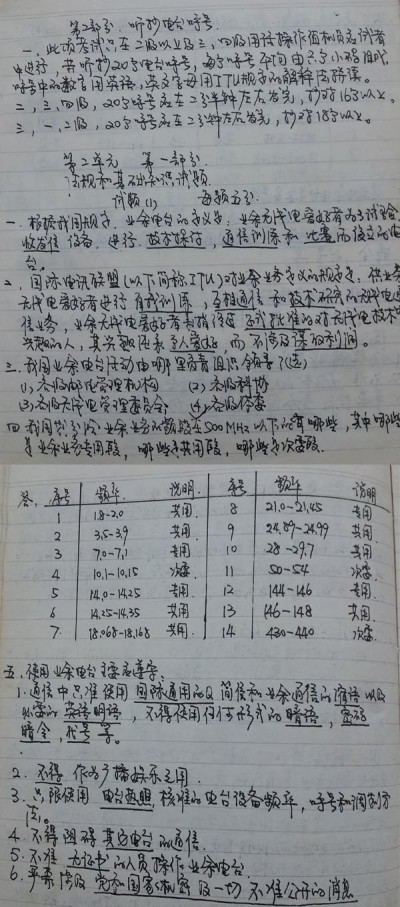 第二部分. 听抄电台呼号.
一. 此项考试只在2级以上及三、四级用话操作值机员应试者
中进行, 共听抄20个电台呼号, 每个呼号平均由六个小码组成
呼号中的数字用英语, 英文字母用ITU规定的解释法拼读。
二, 三、四级, 20个呼号应在2分半钟左右发完, 抄对16个以上。
三, 一、二级, 20个呼号应在2分半钟左右发完, 抄对18个以上。
第二单元 第一部分.
法规和基础知识试题.
试题(1) 每题五分.
一. 根据我国规定, 业余电台的定义是: 业余无线电爱好者为了试验
收发信设备, 进行技术探讨, 通信训练和比赛而设立的电
台。
二. 国际电讯联盟(以下简称ITU)对业余业务定义的规定是: 供业余
无线电爱好者进行自我训练, 互相通信和技术研究的无线电通
信业务, 业余无线电爱好者系指经正式批准的对无线电技术有
兴趣的人, 其兴趣纯系个人爱好, 而不涉及谋取利润。
三. 我国业余电台活动由哪里负责组织领导?(选)
(1) 各级邮电管理机构 (2) 各级科协
(3) 各级无线电管理委员会; (4) 各级体委
四 我国划分给业余业务的频段在500MHz以下的有哪些, 其中哪些
是业余业务专用段, 哪些是共用段, 哪些是次要段.
答. 序号 频率 说明. 序号 频率 说明
1 1.8-2.0 共用. 8 21.0-21.45 专用
2 3.5-3.9 共用 9 24.89-24.99 共用.
3 7.0-7.1 专用 10 28-29.7 共用.
4 10.1-10.15 次要. 11 50-54 次要.
5 14.0-14.25 专用. 12 144-146 专用.
6 14.25-14.35 共用 13 146-148 共用.
7. 18.068-18.168 共用. 14 430-440 次要.
五. 使用业余电台主要应遵守:
1. 通信中只准使用国际通用的Q简语和业余通信的缩语以及
必要的英语明语, 不得使用任何形式的暗语, 密码
暗令, 代号等。
2. 不得作为广播娱乐之用.
3. 只限使用电台执照核准的电台设备频率, 呼号和调制方
法。
4. 不得阻碍其它电台的通信.
5. 不准无证书的人员操作业余电台.
6. 严禁涉及党和国家机密及一切不准公开的消息